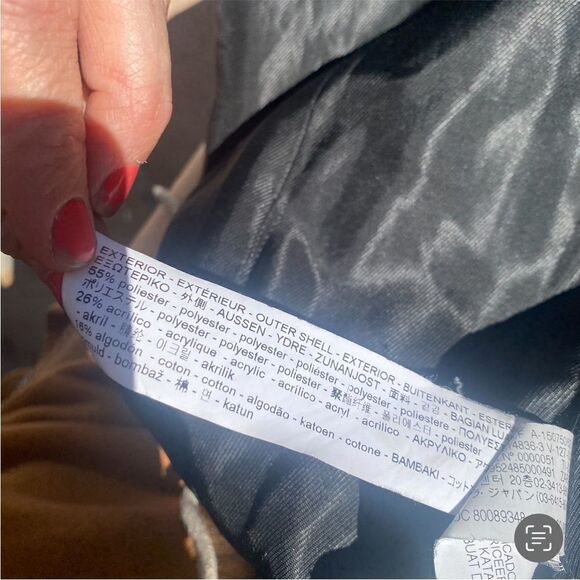 EXTERIOR - EXTÉRIEUR - OUTER SHELL - EXTERIOR - BUITENKANT - ESTER
ΕΞΩΤΕΡΙΚΟ - 外側 - AUSSEN - YDRE - ZUNANJOST - 面料 - 겉감 - BAGIAN LU
55% poliester - polyester - polyester - poliéster - polyester - poliestere - ΠΟΛΥΕΣ
ポリエステル - polyester - polyester - poliester - 聚酯纤维 - 폴리에스터 - poliester
26% acrílico - acrylique - acrylic - acrílico - acryl - acrilico - ΑΚΡΥΛΙΚΟ - アク
- akril - 腈纶 - 아크릴 - akrilik
16% algodón - coton - cotton - algodão - katoen - cotone - ΒΑΜΒΑΚΙ - コット
- bombaž - 棉 - 면 - katun
A-150750
4836-3 V-127
Nº 0000051
952485000491
20층 02-3413
・ジャパン (03-6415
80089348